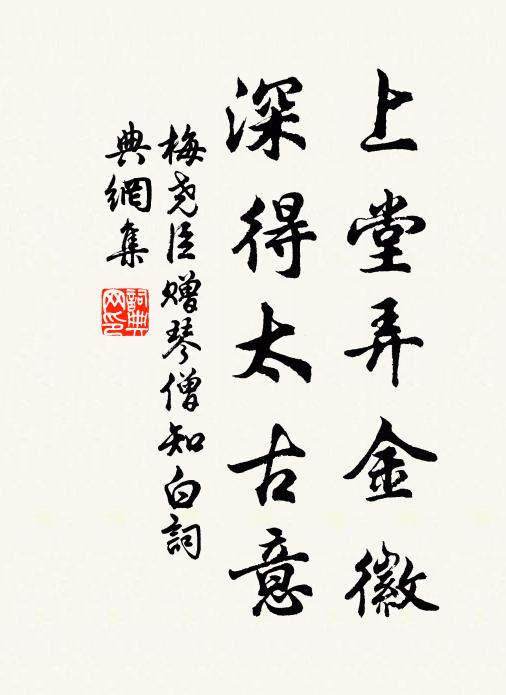 上堂弄金徽
深得太古意
梅尧臣赠琴僧知白詞
典網集
詞典
网印